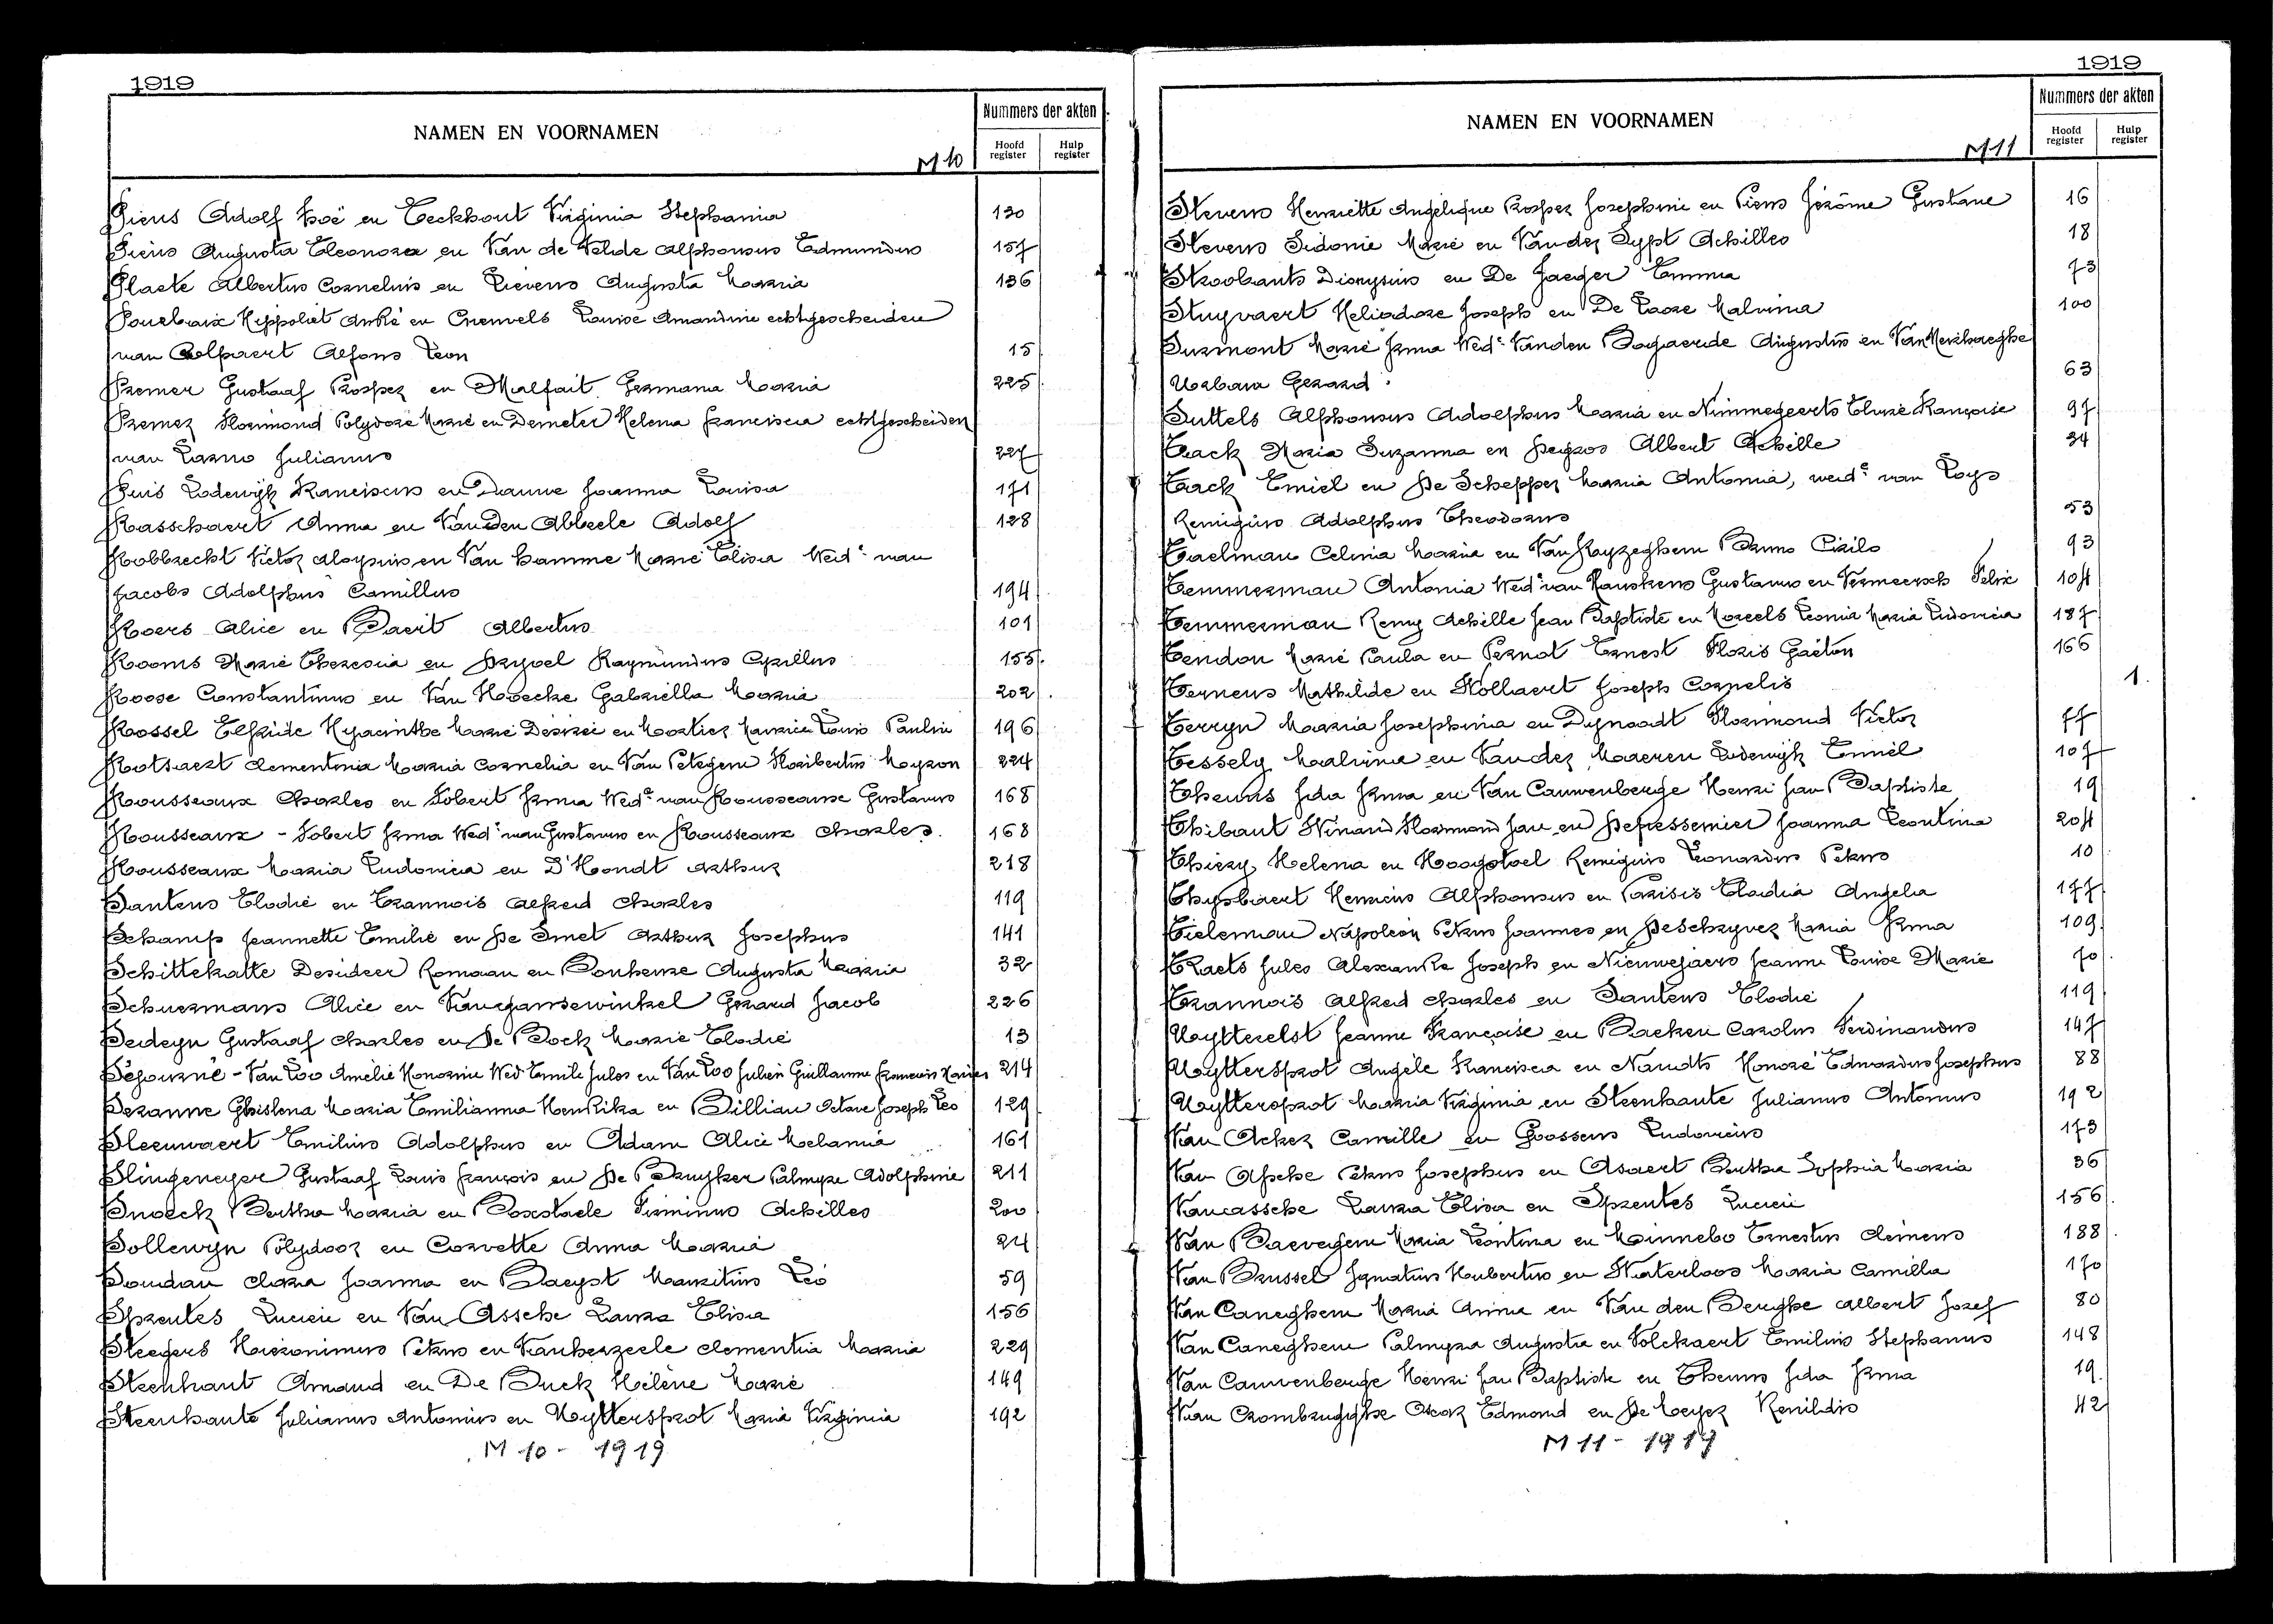 1919
NAMEN EN VOORNAMEN
M 10
Nummers der akten
Hoofd register
Hulp register
Piens Adolf Noë en Eeckhout Virginia Stephania 130
Piens Augusta Eleonora en Van de Velde Alphonsus Edmundus 157
Plaete Albertus Cornelius en Lievens Augusta Maria 136
Hippoliet André en Louise Amandine echtgescheiden
van Colpaert Alfons Leon 15
Premer Gustaaf Prosper en Malfait Germana Maria 225
Premer Florimond Polydore Marie en Demeter Helena Francisca echtgescheiden
van Larno Julianus 227
Puis Lodewijk Franciscus en Dauwe Joanna Louisa 171
Rasschaert Anna en Van Den Abbeele Adolf 128
Robbrecht Victor Aloysius en Van Damme Marie Elisa Wedᵉ van
Jacobs Adolphus Camillus 194
Roers Alice en Baert Albertus 101
Rooms Marie Theresia en Dryoel Raymundus Cyrillus 155
Roose Constantinus en Van Hoecke Gabriella Maria 202
Rossel Elfride Hyacinthe Marie Désirée en Mortier Maurice Louis Paulin 196
Rotsaert Clementina Maria Cornelia en Van Petegem Floribertus Myron 224
Rousseaux Charles en Sobert Irma Wedᵉ van Rousseaux Gustavus 168
Rousseaux - Sobert Irma Wedᵉ van Gustavus en Rousseaux Charles. 168
Rousseaux Maria Ludovica en D'Hondt Arthur 218
Santens Elodie en Trannois Alfred Charles 119
Schamp Jeannette Emilie en De Smet Arthur Josephus 141
Schittekatte Desideer Romaan en Bonheure Augusta Maria 32
Schuermans Alice en Vangansewinkel Gerard Jacob 226
Sedeyn Gustaaf Charles en De Bock Marie Elodie 13
Séjourné - Van Loo Amélie Honorine Wed Emile Jules en Van Loo Julien Guillaume François Xavier 214
Seranne Ghislena Maria Emilianna Hendrika en Billiau Octave Joseph Leo 129
Sleeuwaert Emilius Adolphus en Adam Alice Melania 161
Slingeneyer Gustaaf Louis François en De Bruyker Palmyre Adolphine 211
Snoeck Bertha Maria en Boxstaele Firminus Achilles 200
Sollewijn Polydoor en Corvette Anna Maria 24
Soudan Clara Joanna en Baeyst Mauritius Leo 59
Sprentes Lucien en Van Assche Laura Elisa 156
Steegers Hieronimus Petrus en Vanherzeele Clementia Maria 229
Steenhaut Amand en De Buck Hélène Marie 149
Steenhaute Julianus Antonius en Uyttersprot Maria Virginia 192
M 10 - 1919
1919
NAMEN EN VOORNAMEN
M 11
Nummers der akten
Hoofd register
Hulp register
Stevens Henriëtte Angélique Prosper Josephine en Piens Jérôme Gustave 16
Stevens Sidonie Marie en Vander Sypt Achilles 18
Stroobants Dionysius en De Jaeger Emma 73
Stuyvaert Heliodore Joseph en De Poore Malvina 100
Surmont Marie Irma Wedᵉ Vanden Bogaerde Augustin en Van Meirhaeghe
Urbain Gerard 63
Suttels Alphonsus Adolphus Maria en Nimmegeerts Elvire Françoise 97
Taack Maria Suzanna en Degros Albert Achille 34
Taack Emiel en De Schepper Maria Antonia, wedᵉ van Loys
Remigius Adolphus Theodorus 53
Taelman Celina Maria en Van Royzeghem Bruno Cirilo 93
Temmerman Antonia Wedᵉ van Ranskens Gustavus en Vermeersch Felix 104
Temmerman Remy Achille Jean Baptiste en Moreels Leonia Maria Ludovica 187
Tendon Marie Paula en Pernot Ernest Floris Gaëton 166
Ternens Mathilde en Hollaert Joseph Cornelis 1
Terryn Maria Josephina en Dynoodt Florimond Victor 77
Tessely Malvina en Vander Maeren Lodewijk Emiel 107
Theuns Ida Irma en Van Cauwenberge Henri Jan Baptiste 19
Thibaut Winand Florimond Jan en Depessemier Joanna Leontina 204
Thiery Helena en Hoogstoel Remigius Leonardus Petrus 10
Thysbaert Henricus Alphonsus en Parisis Elodia Angela 177
Tieleman Napoleon Petrus Joannes en De Schryver Maria Irma 109
Traets Jules Alexandre Joseph en Nieuwejaers Jeanne Louise Marie 70
Trannois Alfred Charles en Santens Elodie 119
Uytterelst Jeanne Françoise en Backen Carolus Ferdinandus 147
Uyttersprot Angèle Francisca en Naudts Honoré Edwardus Josephus 88
Uyttersprot Maria Virginia en Steenhaute Julianus Antonius 192
Van Acker Camille en Goossens Ludovicus 173
Van Assche Petrus Josephus en Asaert Bertha Sophia Maria 36
Van Assche Laura Elisa en Sprentes Lucien 156
Van Bavegem Maria Leontina en Minnebo Ernestus Clemens 188
Van Brussel Ignatius Hubertus en Waterloos Maria Camilla 170
Van Caneghem Maria Anna en Van den Berghe Albert Jozef 80
Van Caneghem Palmyra Augusta en Volckaert Emilius Stephanus 148
Van Cauwenberge Henri Jan Baptiste en Theuns Ida Irma 19
Van Crombrugghe Oscar Edmond en De Meyer Renildis 42
M 11 - 1919